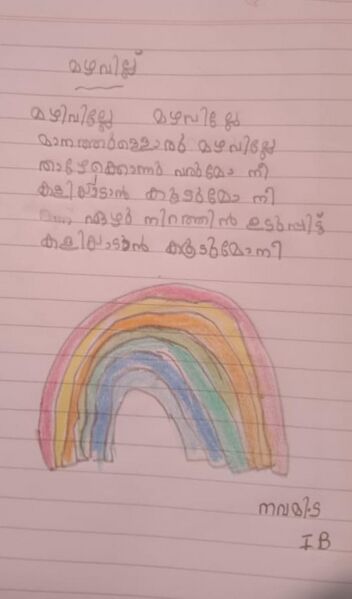 മഴവില്ല്
മഴിവില്ലേ മഴവില്ലേ
മാനത്തുള്ളൊരു മഴവില്ലേ
താഴേക്കൊന്നു വരുമോ നീ
കളിയാടാൻ കൂടുമോ നീ
ഏഴു നിറത്തിൻ ഉടുപ്പിട്ട്
കളിയാടാൻ കൂടുമോനീ
I B